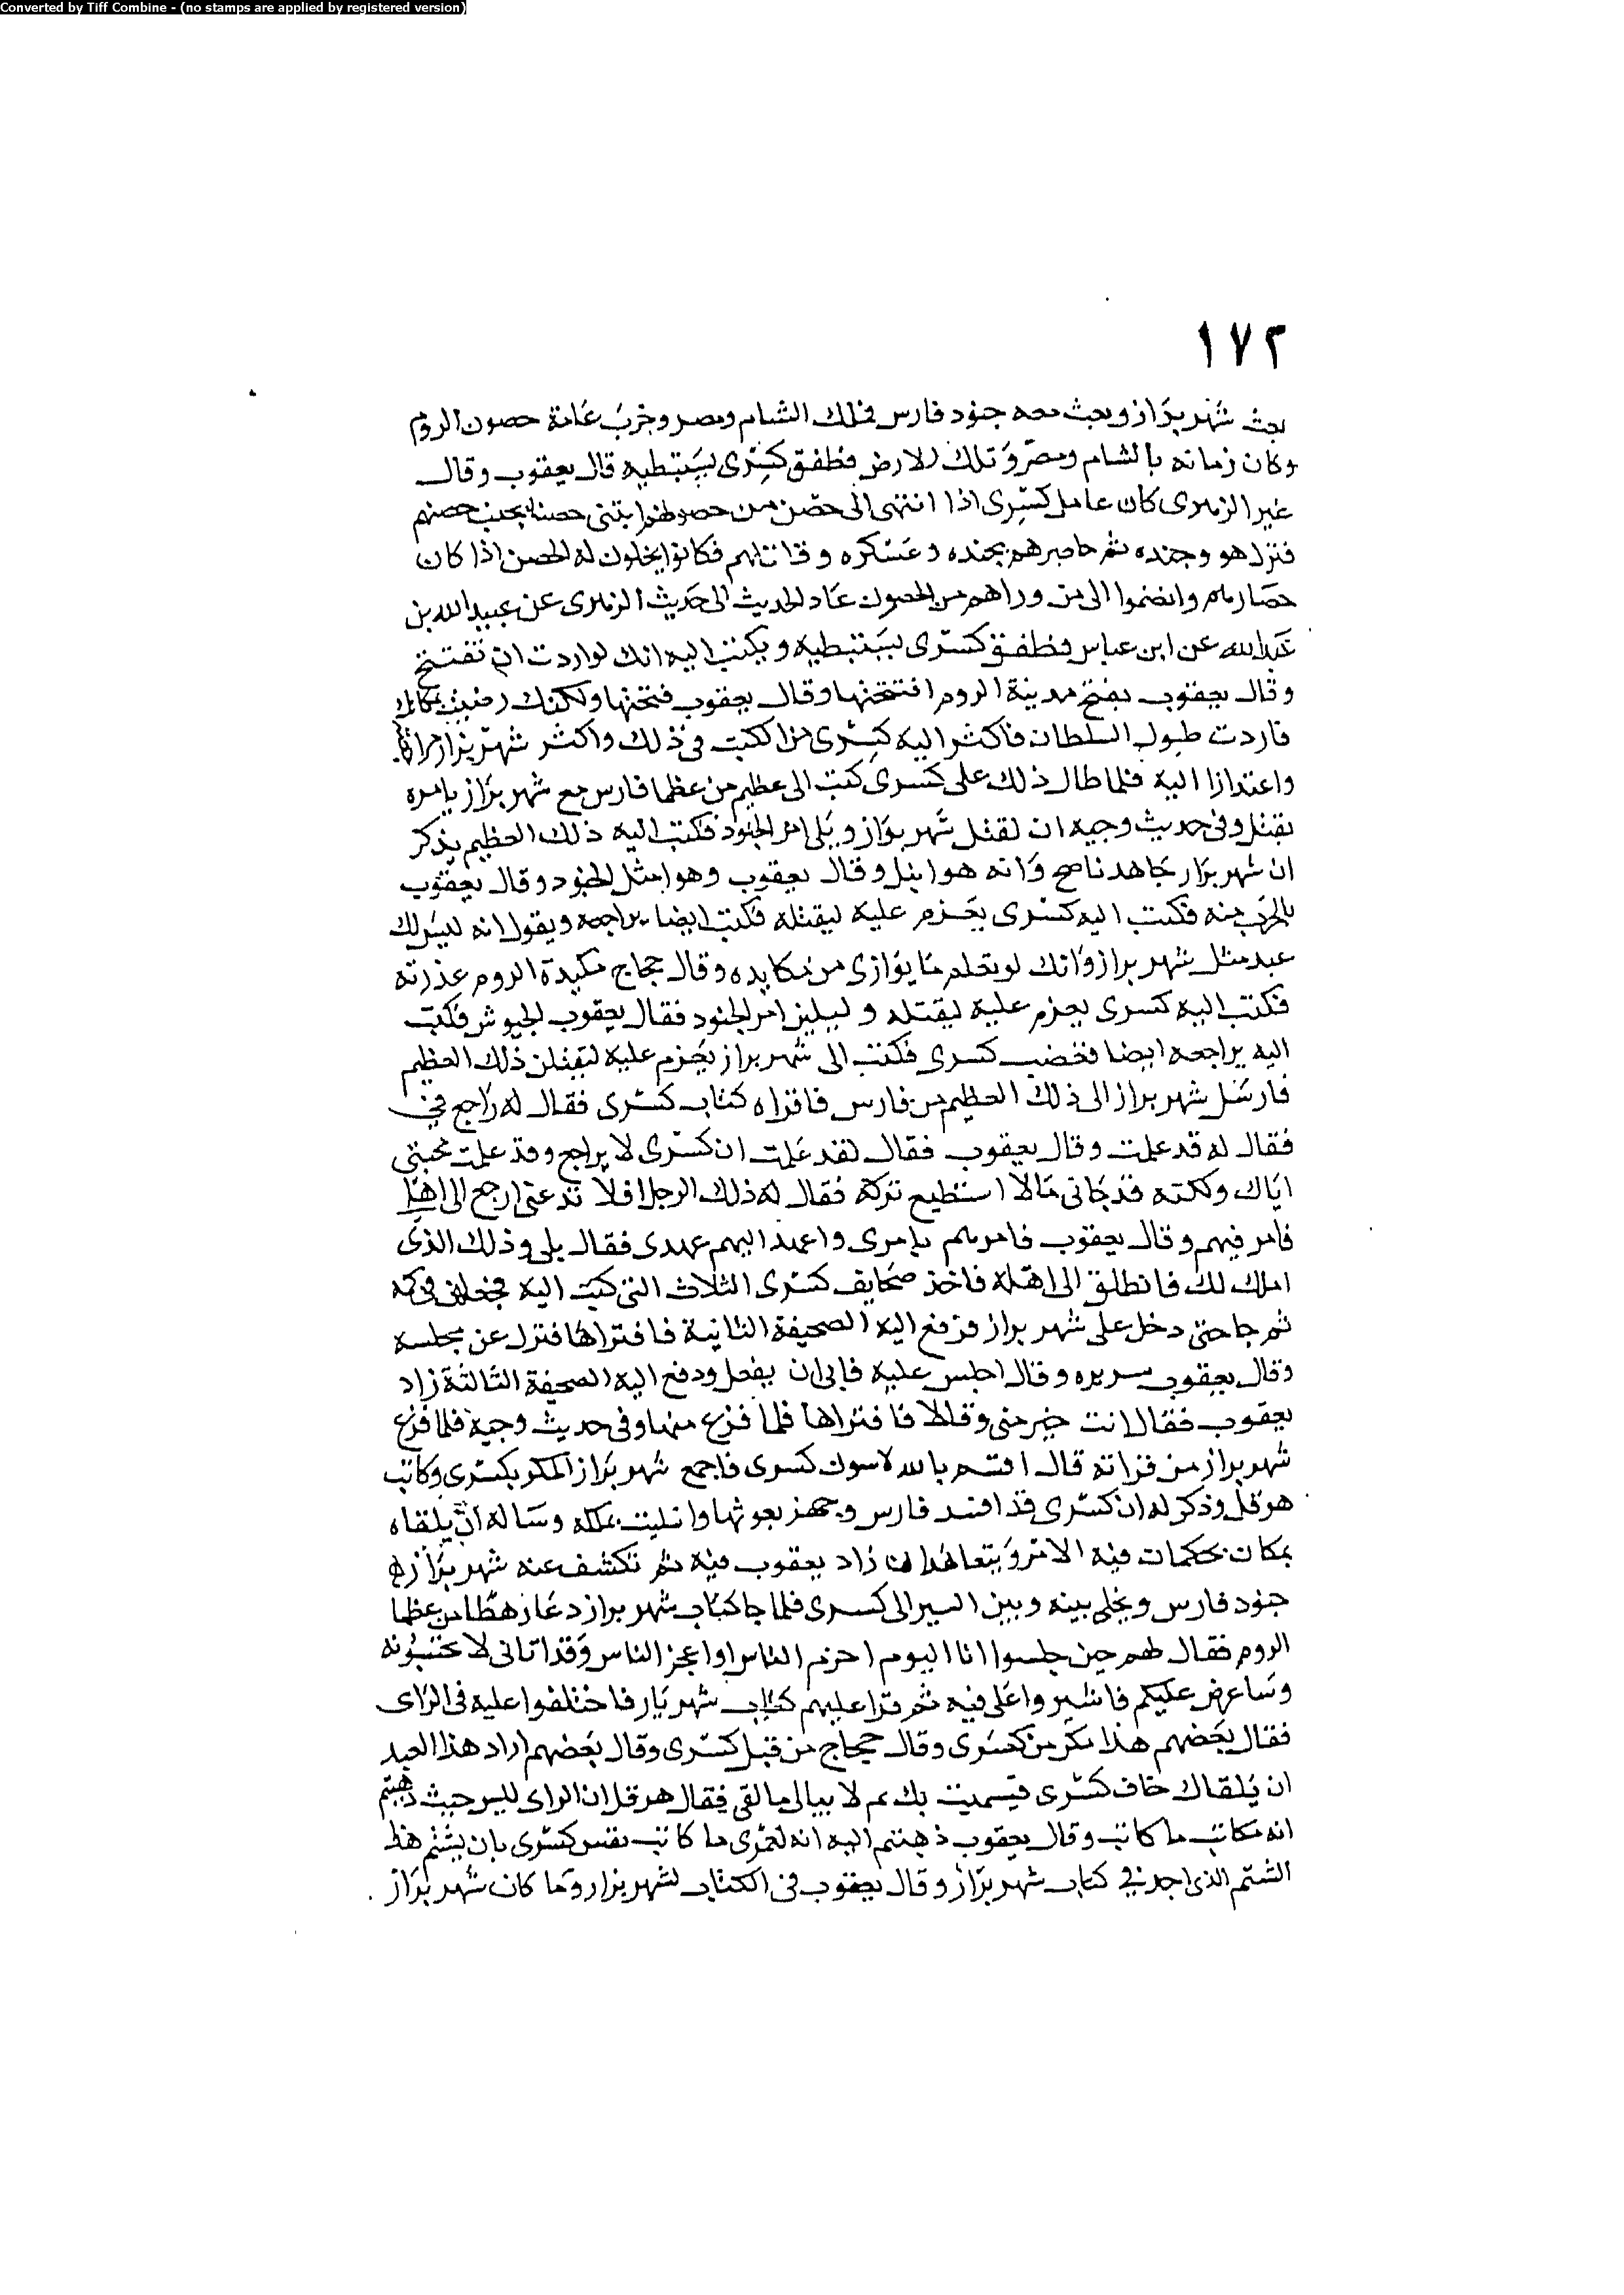 Converted by Tiff Combine - (no stamps are applied by registered version)
١٧٢
بعث شهر براز وبعث معه جنود فارس فملك الشام ومصر وخرب عامة حصون الروم
وكان زمانه بالشام ومصر وتلك الارض فطفق كسرى يستبطيه قال يعقوب وقال
غير الزهرى كان عامل كسرى اذا انتهى الى حصن من حصونهم ابتنى حصنا بجنب حصنهم
فنزل هو وجنده ثم حاصرهم بجنده وعسكره وقاتلهم فكانوا يخلون له الحصن اذا كان
حصارهم وانضموا الى من وراهم من الحصون عاد الحديث الى حديث الزهرى عن عبيد الله بن
عبد الله عن ابن عباس فطفق كسرى يستبطيه ويكتب اليه انك لو اردت ان تفتتح
وقال يعقوب تفتح مدينة الروم افتتحتها وقال يعقوب فتحتها ولكنك رضيت بمكانك
فاردت طول السلطان فاكثر اليه كسرى من الكتب فى ذلك واكثر شهر براز مراجعته
واعتذارا اليه فلما طال ذلك على كسرى كتب الى عظيم من عظما فارس مع شهر براز يامره
بقتل وفى حديث وجيه ان لقتل شهر براز ويلى امر الجنود فكتب اليه ذلك العظيم يذكر
ان شهر براز جاهد ناصح وانه هو ابل وقال يعقوب وهو امثل الجنود وقال يعقوب
بالحرب منه فكتب اليه كسرى يعزم عليه ليقتله فكتب ايضا يراجعه ويقول انه ليس لك
عبد مثل شهر براز وانك لو تعلم ما يوازى من مكايده وقال حجاج مكيدة الروم عذرته
فكتب اليه كسرى يعزم عليه ليقتله وليلين امر الجنود فقال يعقوب الجيوش فكتب
اليه يراجعه ايضا فغضب كسرى فكتب الى شهر براز يعزم عليه لتقتلن ذلك العظيم
فارسل شهر براز الى ذلك العظيم من فارس فاقراه كتاب كسرى فقال له راجع فى
فقال له قد علمت وقال يعقوب فقال لقد علمت ان كسرى لا يراجع وقد علمت محبتى
اياك ولكنه قد جانى مالا استطيع تركه فقال له ذلك الرجل افلا تدعنى ارجع الى اهلى
فامر فيهم وقال يعقوب فامرهم بامرى واعهد اليهم عهدى فقال بلى وذلك الذى
املك لك فانطلق الى اهله فاخذ صحايف كسرى الثلاث التى كتب اليه فجعلهن فى كمه
ثم جا حتى دخل على شهر براز فدفع اليه الصحيفة الثانية فاقتراها فنزل عن مجلسه
وقال يعقوب سريره وقال اجلس عليه فابى ان يفعل ودفع اليه الصحيفة الثالثة زاد
يعقوب فقال انت خير منى وقال فاقتراها فلما فزع منها وفى حديث وجيه فلما فزع
شهر براز من قراته قال اقسم بالله لاسون كسرى فاجمع شهر براز المكر بكسرى وكاتب
هرقل وذكر له ان كسرى قد افسد فارس وجهز بعوثها وابتليت بملكه وساله ان يلقاه
بمكان يحكمان فيه الامر ويتعاهدان زاد يعقوب فيه ثم تكشف عنه شهر براز
جنود فارس ويخلى بينه وبين السير الى كسرى فلما جا كتاب شهر براز دعا رهطا من عظما
الروم فقال لهم حين جلسوا انا اليوم احزم الناس او اعجز الناس وقد اتانى لا تحتسبونه
وساعرض عليكم فاشيروا على فيه ثم قرا عليهم كتاب شهر يار فاختلفوا عليه فى الراى
فقال بعضهم هذا مكر من كسرى وقال حجاج من قبل كسرى وقال بعضهم اراد هذا العبد
ان يلقاك خاف كسرى فيستميت بك ثم لا يبالى ما لقى فقال هرقل ان الراى ليس حيث ذهبتم
انه مكاتب ما كاتب وقال يعقوب ذهبتم اليه انه لعمرى ما كاتب نفس كسرى بان يشتم هذا
الشتم الذى اجد فى كتاب شهر براز وقال يعقوب فى الكتاب لشهر براز وما كان شهر براز